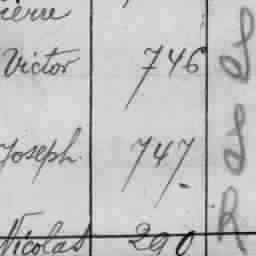 Victor 746
Joseph 747
Nicolas 290
R